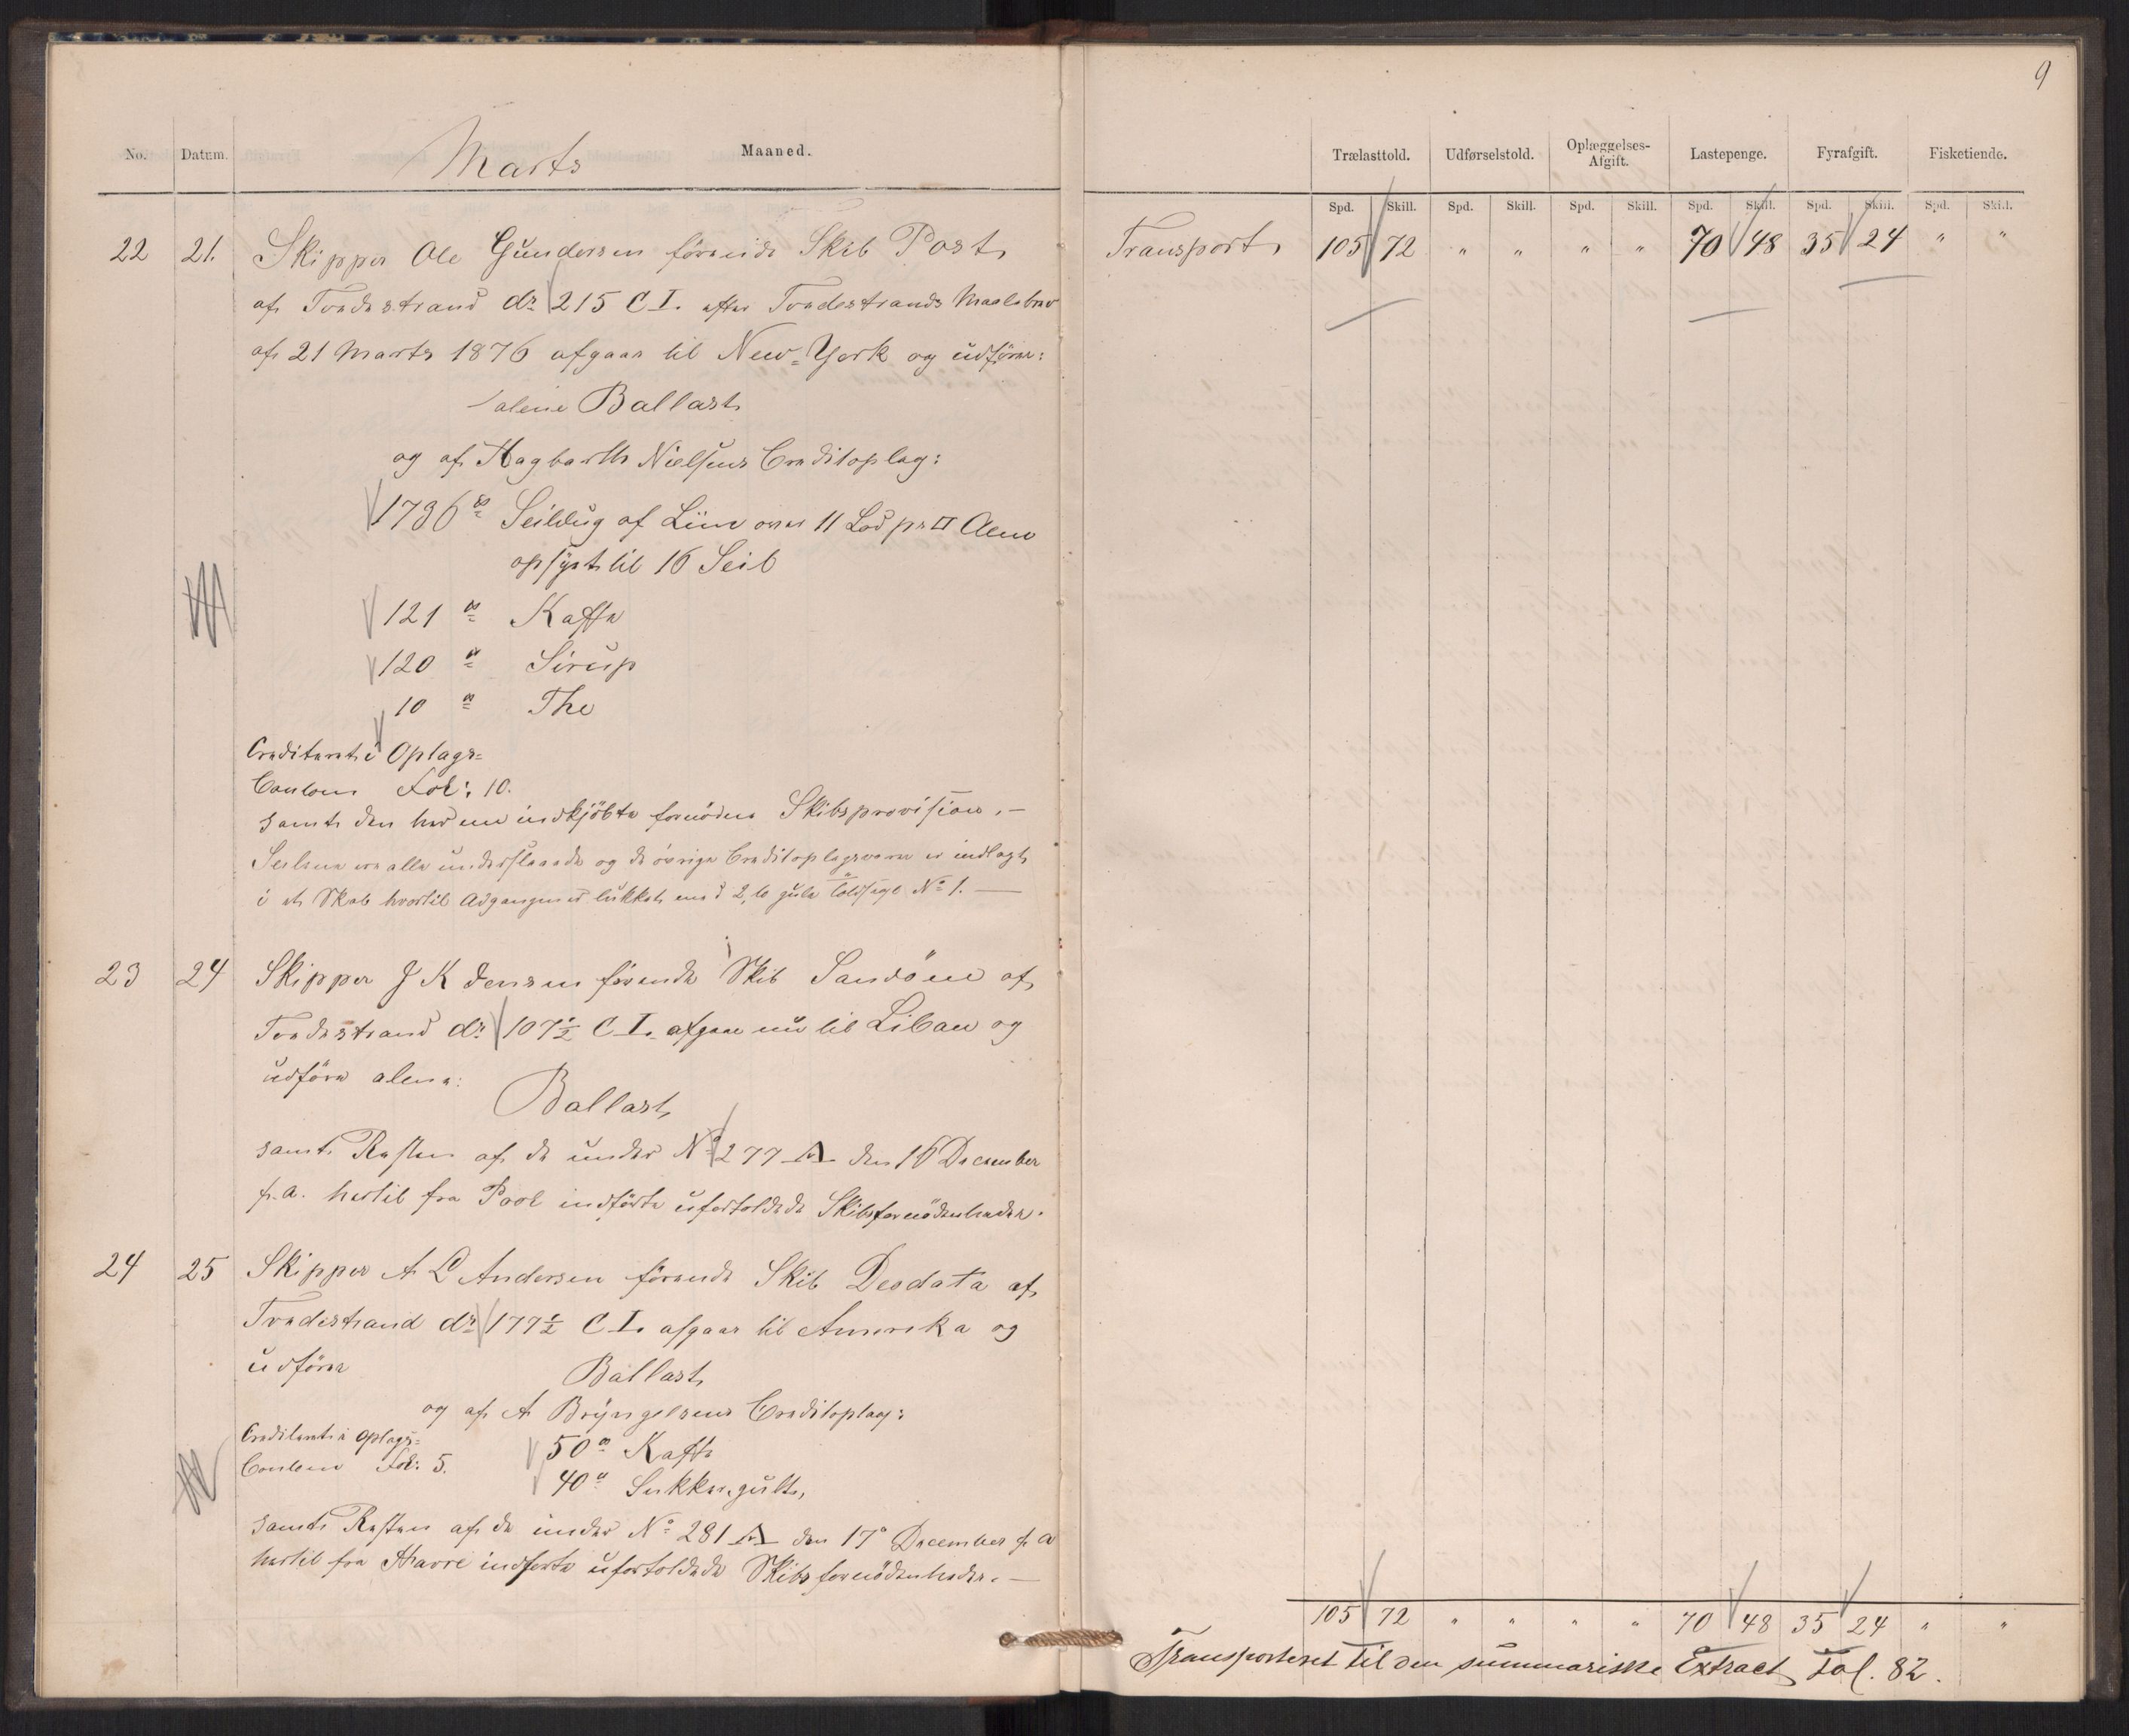 9
No. Datum. Marts Maaned.
22 21. Skipper Ole Gundersen förende Skib Post
af Tvedestrand dr. 215 C L. efter Tvedestrands Maalebrev
af 21 Marts 1876 afgaar til New-York og udförer:
alene Ballast
og af Hagbarth Nielsens Creditoplag:
1736 ℔ Seildug af Liin over 11 Lod pr □ Alen
opsyet til 16 Seil
121 ℔ Kaffe
120 ℔ Sirup
10 ℔ The
Crediteret i Oplags-
Contoen Fol: 10.
samt den herved indkjöbte fornödne Skibsprovision.-
Seilene ere alle underslaaede og de övrige Creditoplagsvarer er indlagt
i et Skab hvortil Adgangen er lukket med 2, to gule Toldsegl No 1. -
23 24 Skipper J K Jensen förende Skib Sandöen af
Tvedestrand dr. 107 1/2 C L. afgaar nu til Libau og
udförer alene:
Ballast
samt Resten af de under No 277 A den 16 December
f.A. hertil fra Pool indförte ufortoldede Skibsfornödenheder.
24 25 Skipper A L Andersen förende Skib Deodata af
Tvedestrand dr. 177 1/2 C L. afgaar til Amerika og
udförer Ballast
og af A Bryngelsens Creditoplag:
Crediteret i Oplags-
Contoen Fol: 5.
50 ℔ Kaffe
40 ℔ Sukker, gult,
samt Resten af de under No 281 A den 17de December f. A
hertil fra Havre indförte ufortoldede Skibsfornödenheder. -
Trælasttold. Udførselstold. Oplæggelses-Afgift. Lastepenge. Fyrafgift. Fisketiende.
Spd. Skill. Spd. Skill. Spd. Skill. Spd. Skill. Spd. Skill. Spd. Skill.
Transport 105 72 " " " " 70 48 35 24 " "
105 72 " " " " 70 48 35 24 " "
Transporteret til den summariske Extract Fol. 82.